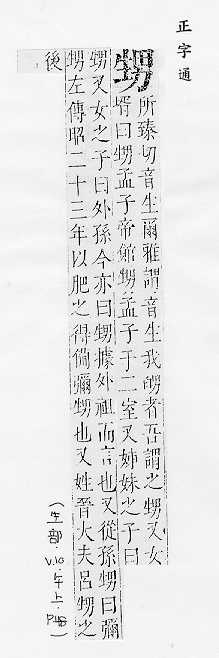 正字通
甥
所臻切音生爾雅謂音生我舅者吾謂之甥又女
壻曰甥孟子帝館甥孟子于二室又姊妹之子曰
甥又女之子曰外孫今亦曰甥據外祖而言也又從孫甥曰彌
甥左傳昭二十三年以肥之得備彌甥也又姓晉大夫呂甥之
後
(生部.V.10.午上.P48)